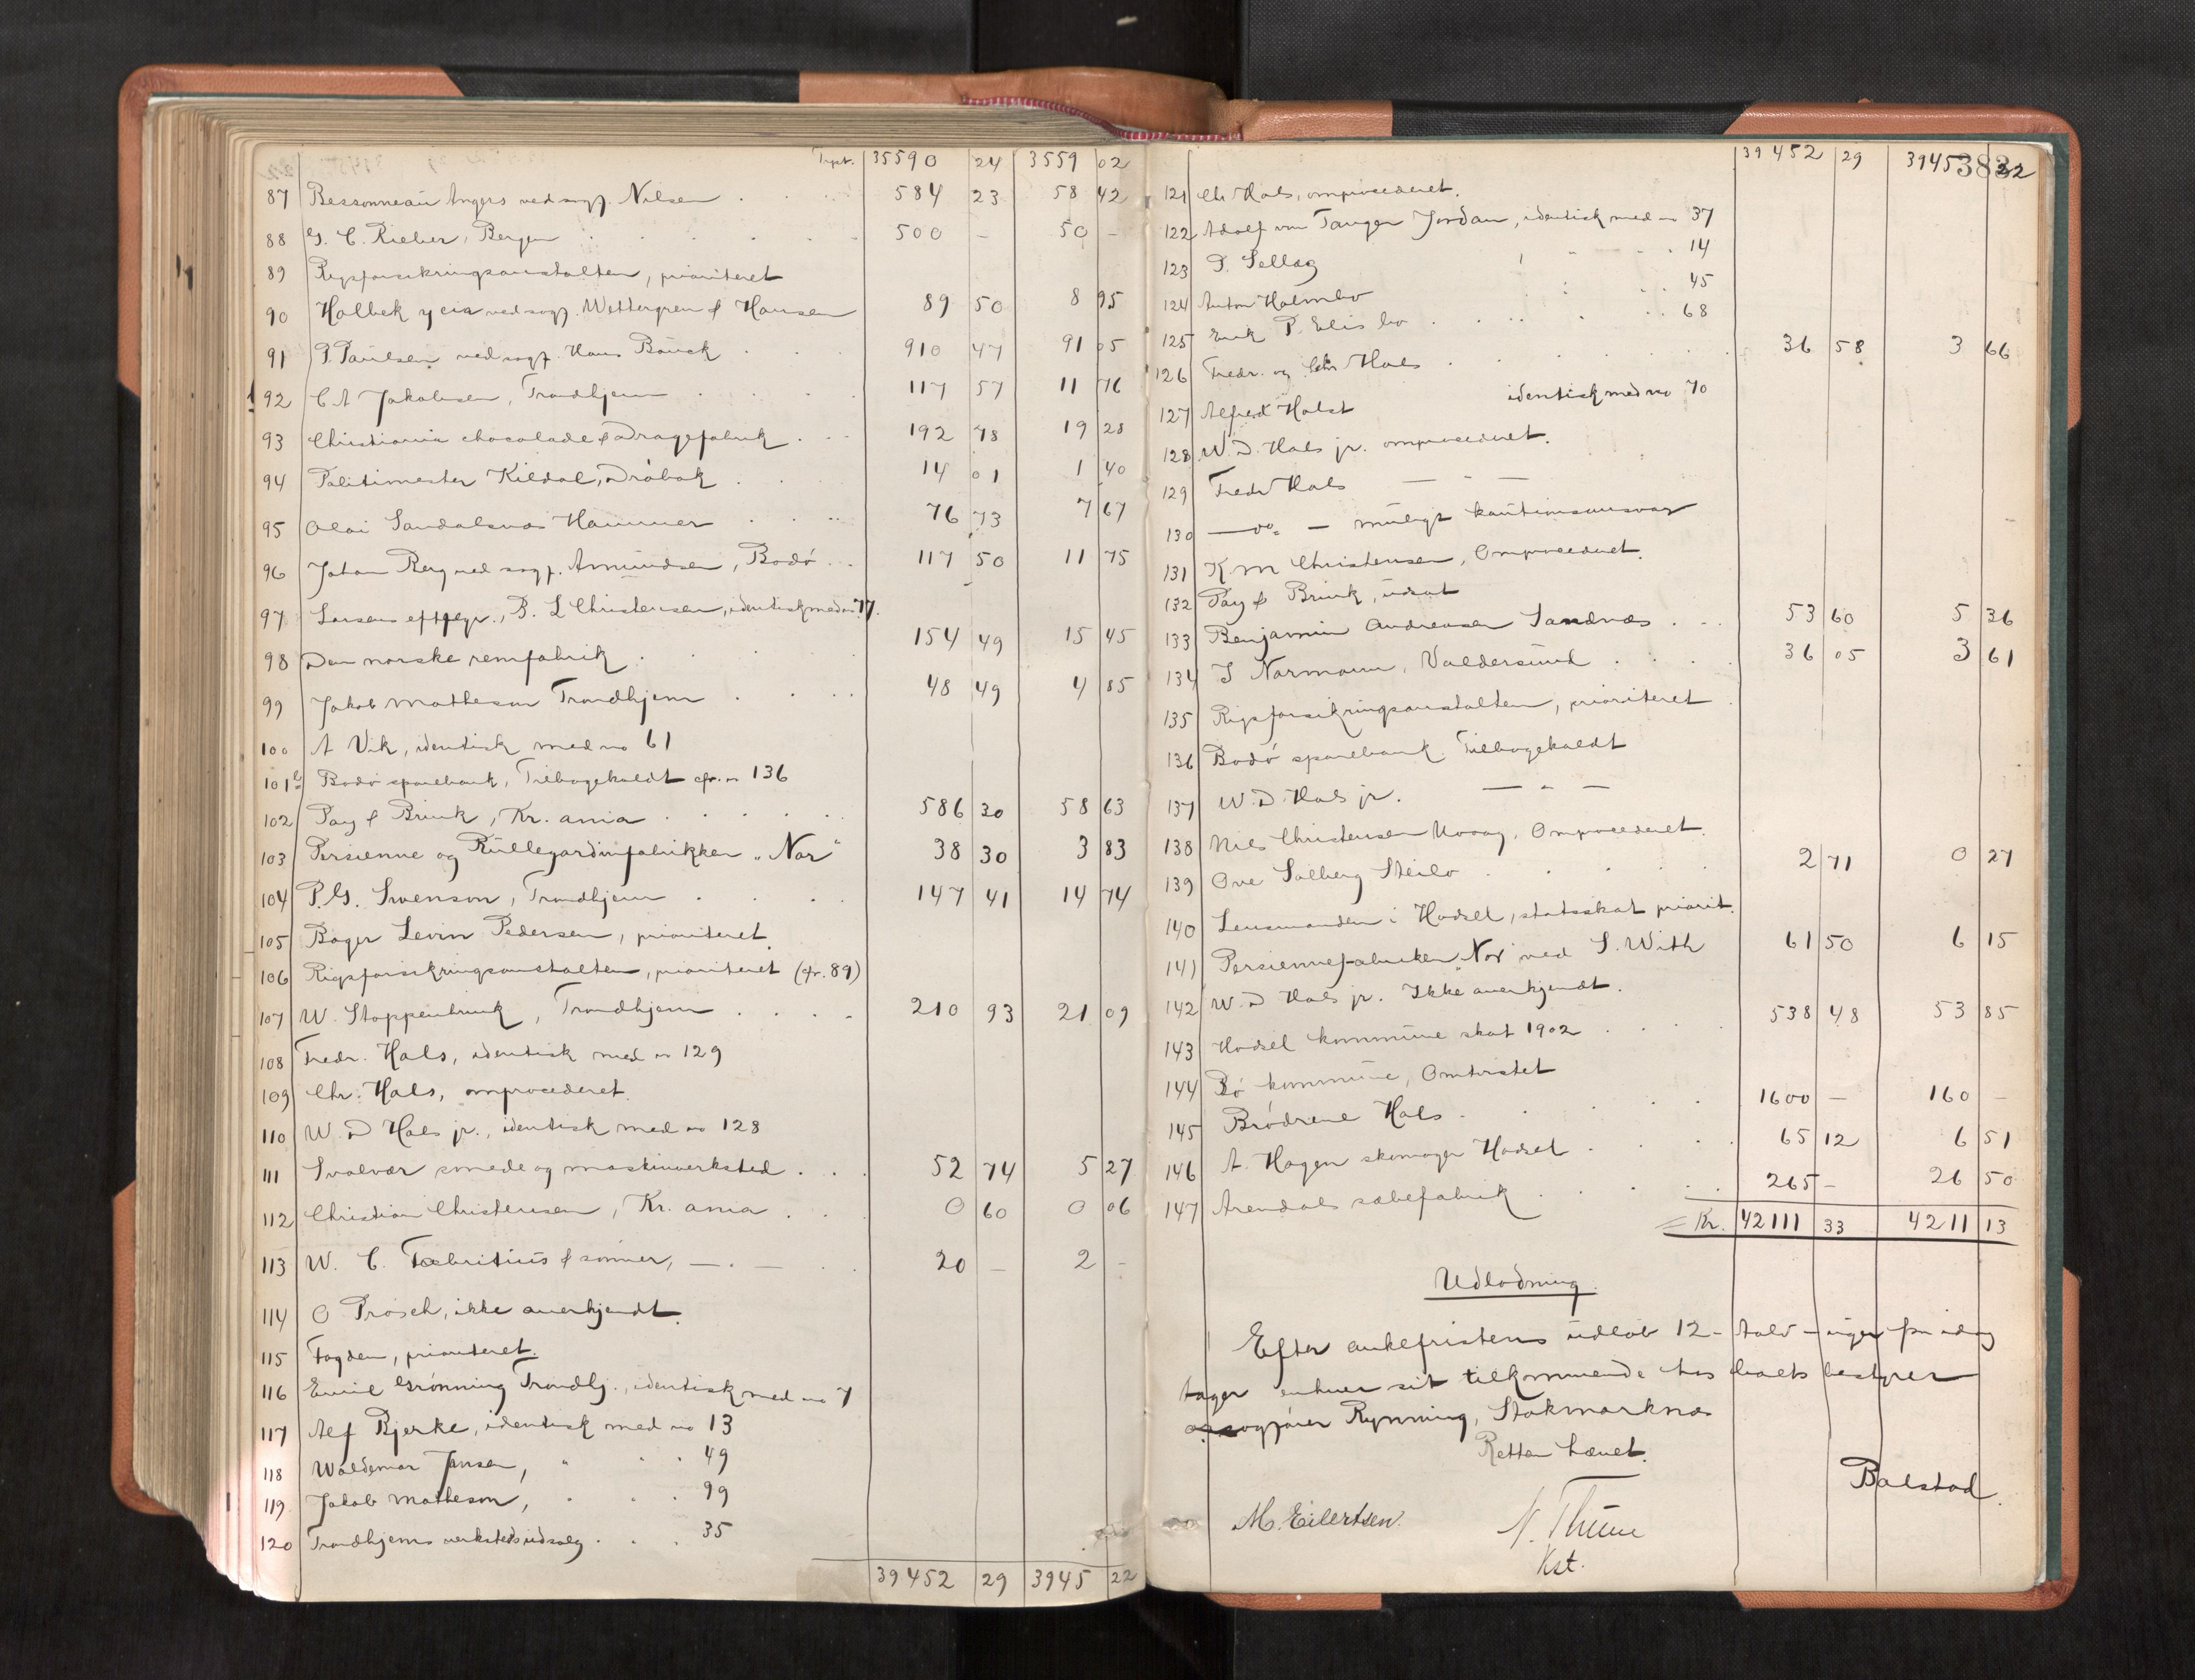 Trpt. 35590 24 3559 02
87 Bessonneau Angers ved sagf. Nilsen 584 23 58 42
88 G. C. Rieber, Bergen 500 — 50 —
89 Rigsforsikringsanstalten, prioriteret
90 Holbek y cia ved sagf. Wettergren & Hansen 89 50 8 95
91 P. Paulsen ved sagf. Hans Bauck 910 47 91 05
92 C A Jakobsen, Trondhjem 117 57 11 76
93 Christiania chocolade & Dragefabrik 192 78 19 28
94 Politimester Kildal, Drøbak 14 01 1 40
95 Olai Sandalsnes Hammer 76 73 7 67
96 Johan Berg ved sagf. Amundsen, Bodø 117 50 11 75
97 Larsens eftflgr., B. L Christensen, identisk med no 77.
98 Den norske remfabrik 154 49 15 45
99 Jakob Matheson Trondhjem 48 49 4 85
100 A Vik, identisk med no 61
101 b Bodø sparebank, Tilbagekaldt cfr. no 136
102 Pay & Brink, Kr.ania 586 30 58 63
103 Persienne og Rullegardinfabrikken "Nor" 38 30 3 83
104 P. G. Svenson, Trondhjem 147 41 14 74
105 Bager Levin Pedersen, prioriteret.
106 Rigsforsikringsanstalten, prioriteret (cfr. 89)
107 W. Stoppenbrink, Trondhjem 210 93 21 09
108 Fredr. Hals, identisk med no 129
109 Chr. Hals, omprocederet.
110 W. D Hals jr., identisk med no 128
111 Svolvær smede og maskinverksted 52 74 5 27
112 Christian Christensen, Kr.ania 0 60 0 06
113 W. C. Fabritius & sønner, — " — 20 — 2 —
114 O Prøsch, ikke anerkjendt.
115 Fogden, prioriteret.
116 Emil Grønning Trondhj., identisk med no 7
117 Alf Bjerke, identisk med no 13
118 Waldemar Jansen, " . . 49
119 Jakob Matheson, " . . 99
120 Trondhjems verkstedsudsalg . . . 35
39452 29 3945 22
39452 29 3945 22
383
121 Chr Hals, omprocederet.
122 Adolf von Tangen Jordan, identisk med no 37
123 P. Sellæg " " 14
124 Anton Holmbo " " 45
125 Erik P. Elisbo " " 68
126 Fredr. og Chr Hals 36 58 3 66
127 Alfred Holst identisk med no 70
128 W. D. Hals jr. omprocederet.
129 Fredr Hals — " —
130 — do — muligt kautionsansvar
131 K M Christensen, Omprocederet.
132 Pay & Brink, udsat
133 Benjamin Andreasen Sandnes 53 60 5 36
134 J Normann, Valdersund 36 05 3 61
135 Rigsforsikringsanstalten, prioriteret
136 Bodø sparebank. Tilbagekaldt
137 W. D. Hals jr. — " —
138 Nils Christensen, Omprocederet.
139 Ove Solberg Steilo 2 71 0 27
140 Lensmanden i Hadsel, statsskat priorit.
141 Persiennefabriken "Nor" ved S. With 61 50 6 15
142 W. D Hals jr. Ikke anerkjendt.
143 Hadsel kommune skat 1902 538 48 53 85
144 Bø kommune, Omtvistet
145 Brødrene Hals 1600 — 160 —
146 A. Hagen skomager Hadsel 65 12 6 51
147 Arendals sæbefabrik 265 — 26 50
Kr. 42111 33 4211 13
Udlodning.
Efter ankefristens udløb 12 - tolv - uger fra idag
tager enhver sit tilkommende hos boets bestyrer
sagfører Rynning, Stokmarknes
Retten hævet.
Balstad.
M. Eilertsen. N. Thune
Kst.